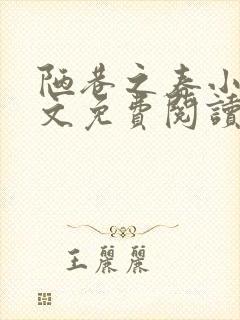 陋巷之春小
文免費閱讀
王麗麗